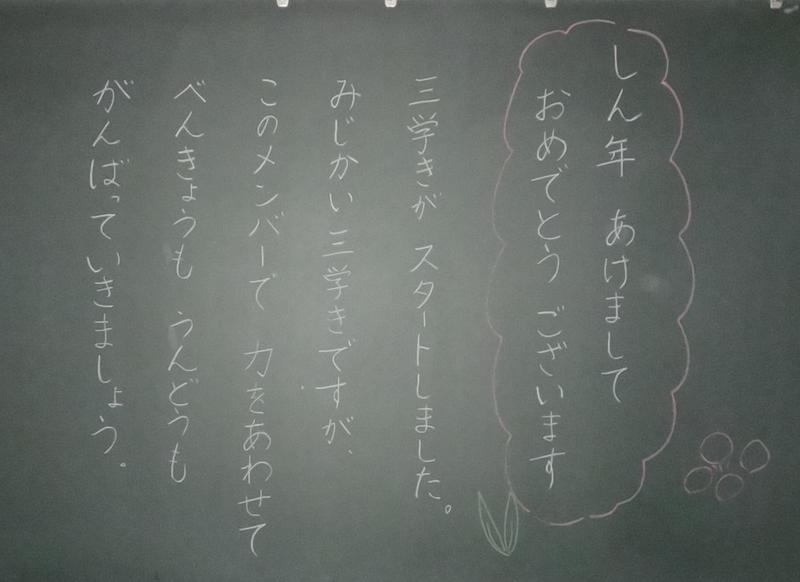 しん年　あけまして
おめでとう　ございます
三学きが　スタートしました。
みじかい　三学きですが、
このメンバーで　力をあわせて
べんきょうも　うんどうも
がんばって　いきましょう。